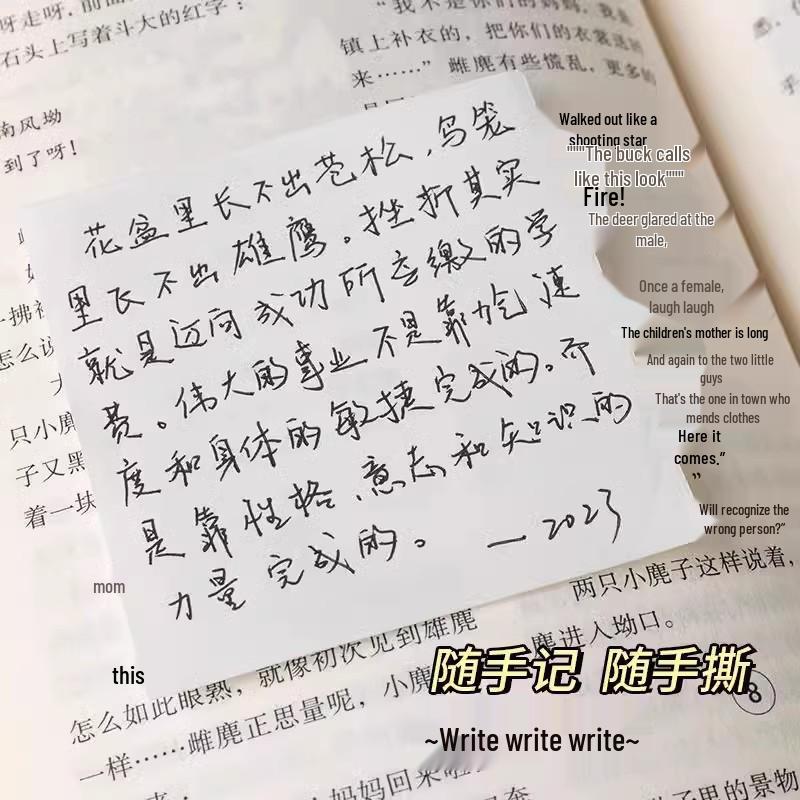 呀走呀，前面
石头上写着斗大的红字：
南风坳
到了呀！
"我不是你们的妈妈，我是
镇上补衣的，把你们的衣裳送
来……"雌麂有些慌乱，更多的
花盆里长不出苍松，鸟笼
里长不出雄鹰。挫折其实
就是迈向成功所应缴的学
费。伟大的事业不是靠力气 速
度和身体的敏捷完成的。而
是靠性格、意志和知识的
力量完成的。 —2023
Walked out like a
shooting star
"""The buck calls
like this look"""
Fire!
The deer glared at the
male,
Once a female,
laugh laugh
The children's mother is long
And again to the two little
guys
That's the one in town who
mends clothes
Here it
comes."
"
Will recognize the
wrong person?"
一拂
怎么说
只小麂
子又黑
着一块
mom
this
两只小麂子这样说着，
麂进入坳口。
怎么如此眼熟，就像初次见到雄麂
一样……雌麂正思量呢，小麂
妈妈回来
子里的景物
随手记 随手撕
8
~Write write write~